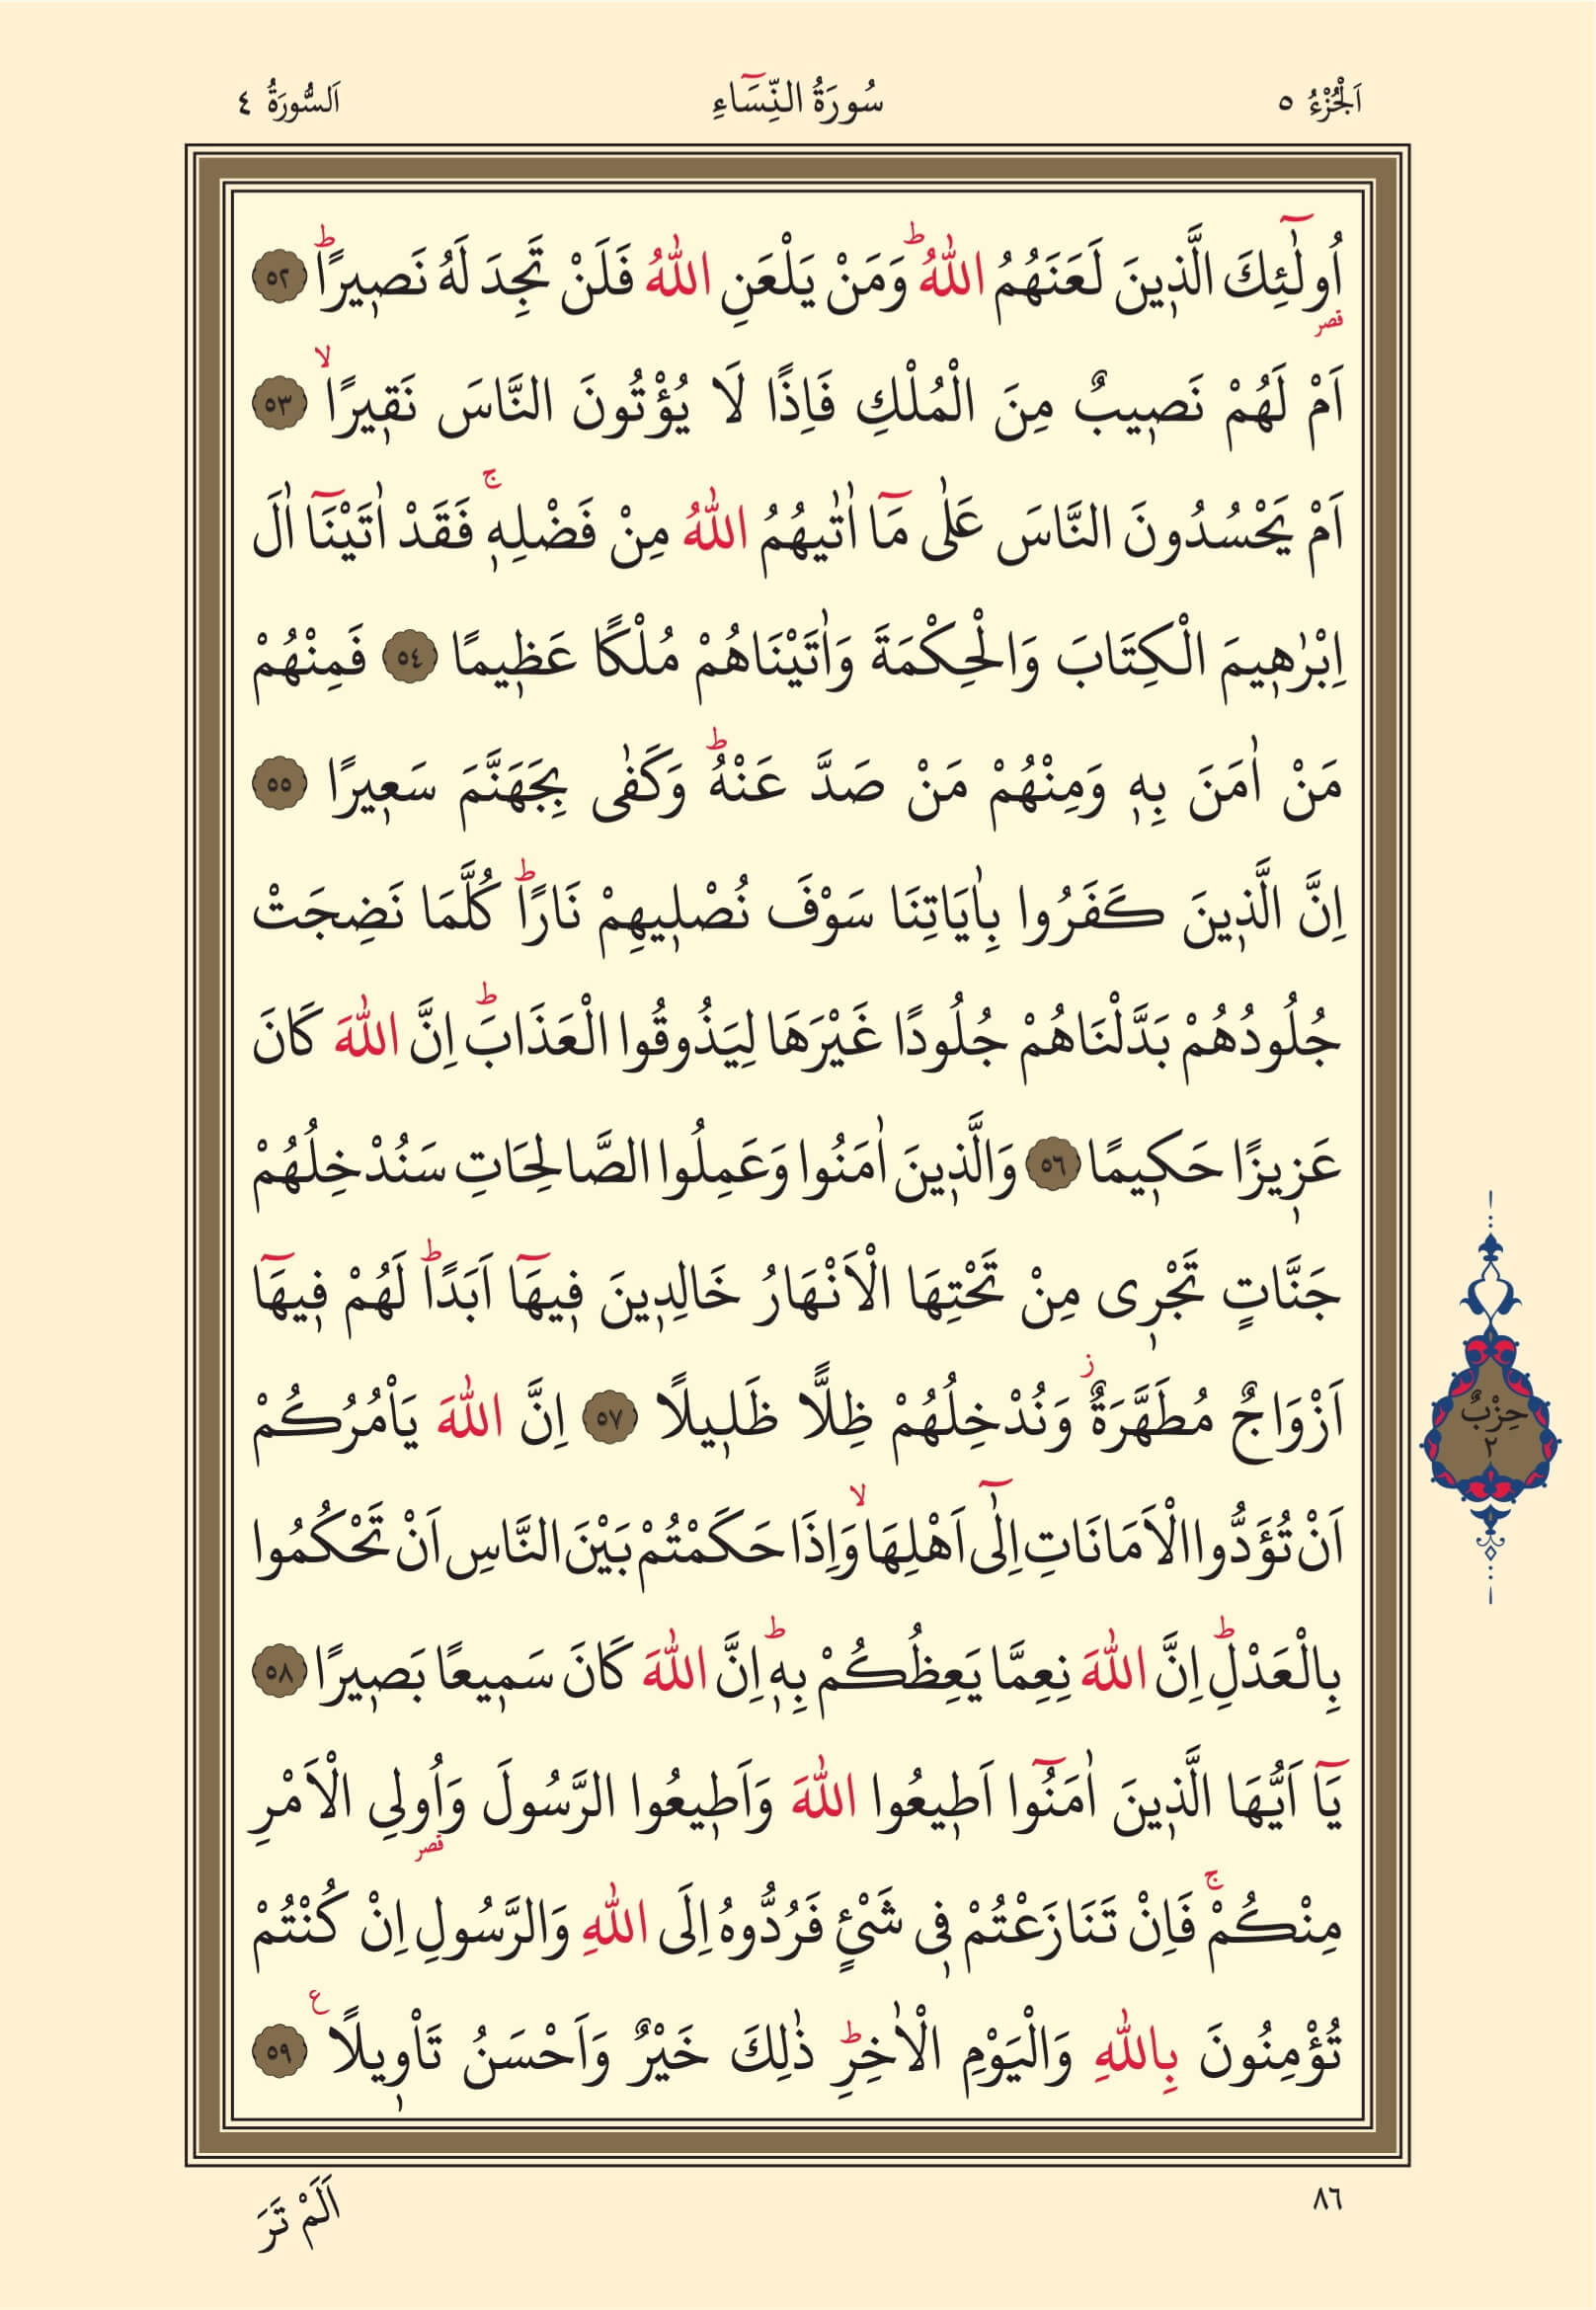 اَلْجُزْءُ ٥ سُورَةُ النِّسَٓاءِ اَلسُّورَةُ ٤
اُو۬لٰٓئِكَ الَّذ۪ينَ لَعَنَهُمُ اللّٰهُۜ وَمَنْ يَلْعَنِ اللّٰهُ فَلَنْ تَجِدَ لَهُ نَص۪يرًاۜ ﴿٥٢﴾
قصر
اَمْ لَهُمْ نَص۪يبٌ مِنَ الْمُلْكِ فَاِذًا لَا يُؤْتُونَ النَّاسَ نَق۪يرًاۙ ﴿٥٣﴾
اَمْ يَحْسُدُونَ النَّاسَ عَلٰى مَٓا اٰتٰيهُمُ اللّٰهُ مِنْ فَضْلِه۪ۚ فَقَدْ اٰتَيْنَٓا اٰلَ
اِبْرٰه۪يمَ الْكِتَابَ وَالْحِكْمَةَ وَاٰتَيْنَاهُمْ مُلْكًا عَظ۪يمًا ﴿٥٤﴾ فَمِنْهُمْ
مَنْ اٰمَنَ بِه۪ وَمِنْهُمْ مَنْ صَدَّ عَنْهُۜ وَكَفٰى بِجَهَنَّمَ سَع۪يرًا ﴿٥٥﴾
اِنَّ الَّذ۪ينَ كَفَرُوا بِاٰيَاتِنَا سَوْفَ نُصْل۪يهِمْ نَارًاۜ كُلَّمَا نَضِجَتْ
جُلُودُهُمْ بَدَّلْنَاهُمْ جُلُودًا غَيْرَهَا لِيَذُوقُوا الْعَذَابَۜ اِنَّ اللّٰهَ كَانَ
عَز۪يزًا حَك۪يمًا ﴿٥٦﴾ وَالَّذ۪ينَ اٰمَنُوا وَعَمِلُوا الصَّالِحَاتِ سَنُدْخِلُهُمْ
جَنَّاتٍ تَجْر۪ى مِنْ تَحْتِهَا الْاَنْهَارُ خَالِد۪ينَ ف۪يهَٓا اَبَدًاۜ لَهُمْ ف۪يهَٓا
اَزْوَاجٌ مُطَهَّرَةٌۘ وَنُدْخِلُهُمْ ظِلًّا ظَل۪يلًا ﴿٥٧﴾ اِنَّ اللّٰهَ يَاْمُرُكُمْ
حِزْبٌ
٢
اَنْ تُؤَدُّوا الْاَمَانَاتِ اِلٰٓى اَهْلِهَاۙ وَاِذَا حَكَمْتُمْ بَيْنَ النَّاسِ اَنْ تَحْكُمُوا
بِالْعَدْلِۜ اِنَّ اللّٰهَ نِعِمَّا يَعِظُكُمْ بِه۪ۜ اِنَّ اللّٰهَ كَانَ سَم۪يعًا بَص۪يرًا ﴿٥٨﴾
يَٓا اَيُّهَا الَّذ۪ينَ اٰمَنُٓوا اَط۪يعُوا اللّٰهَ وَاَط۪يعُوا الرَّسُولَ وَاُو۬لِى الْاَمْرِ
قصر
مِنْكُمْۚ فَاِنْ تَنَازَعْتُمْ ف۪ى شَىْءٍ فَرُدُّوهُ اِلَى اللّٰهِ وَالرَّسُولِ اِنْ كُنْتُمْ
تُؤْمِنُونَ بِاللّٰهِ وَالْيَوْمِ الْاٰخِرِۜ ذٰلِكَ خَيْرٌ وَاَحْسَنُ تَاْو۪يلًاع ﴿٥٩﴾
٨٦ اَلَمْ تَرَ